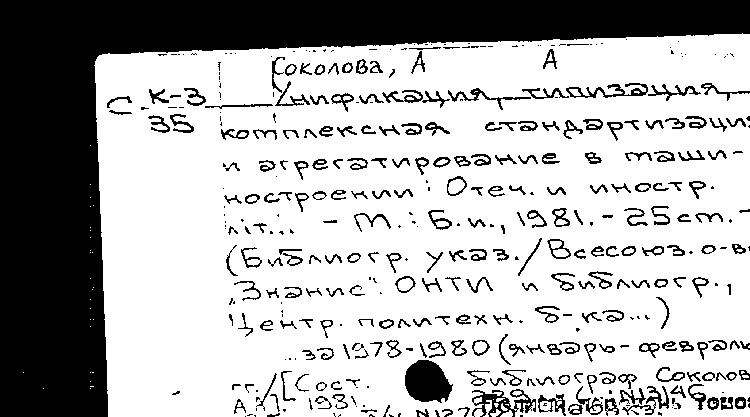 Соколова, А А
С. К-3 Унификация, типизация,
35 комплексная стандартизация
и агрегатирование в маши-
ностроении: Отеч. и иностр.
літ... - М.: Б.и., 1981. - 25 ст. -
(Библиогр. указ./Всесоюз. о-во
„Знание". ОНТИ и библиогр.,
Центр. политехн. б-ка...)
...за 1978-1980 (январь-февраль
гг./[Сост. библиограф Соколов
А.А]. 1981.